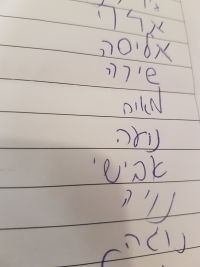 אליסה
שירה
מאיה
נועה
אבישי
נויה
נוגה